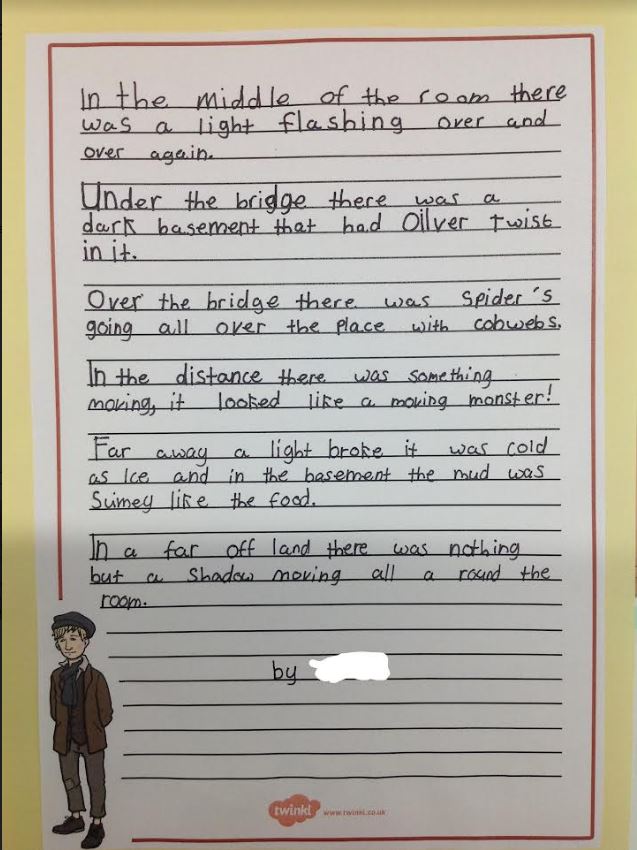 In the middle of the room there
was a light flashing over and
over again.
Under the bridge there was a
dark basement that had Oilver Twist
in it.
Over the bridge there was Spider's
going all over the place with cobwebs.
In the distance there was something
moving, it looked like a moving monster!
Far away a light broke it was cold
as Ice and in the basement the mud was
Sumey like the food.
In a far off land there was nothing
but a Shadow moving all a round the
room.
by
twinkl www.twinkl.co.uk